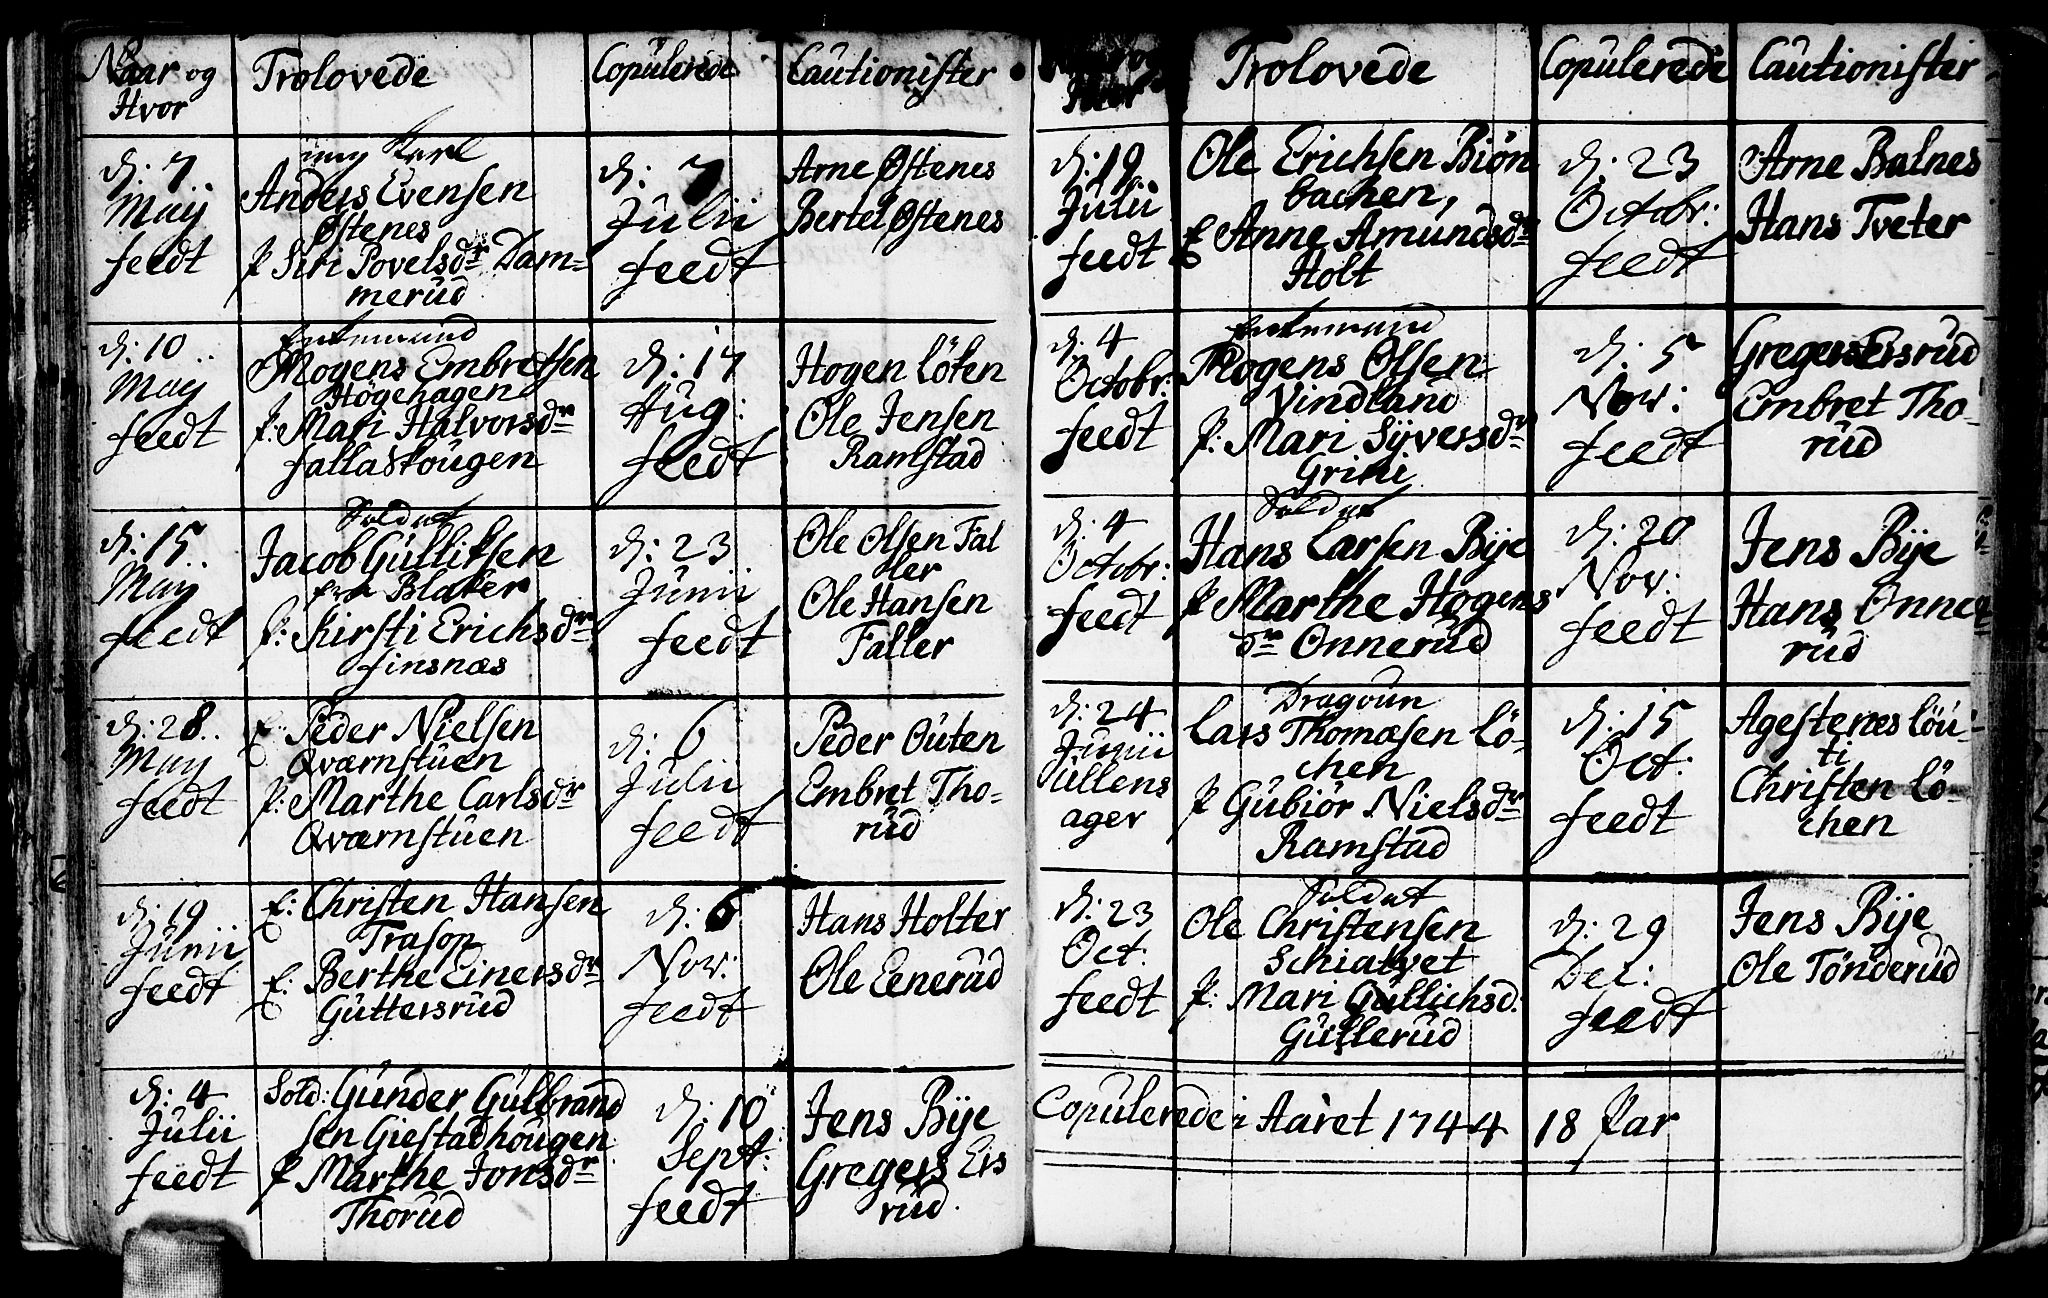 Naar og
Hvor
Trolovede
Copulerede
Cautionister
d: 7
Maÿ
feedt
ung Karl
Anders Evensen
Østenes
P Siri Povelsdr Dam=
merud
d: 7
Julii
feedt
Arne Østenes
Bertel Østenes
d: 10
Maÿ
feedt
Enkemand
Mogens Embretsen
Högehagen
P: Mari Halvorsdr
fallaskougen
d: 17
Aug:
feedt
Hogen Löken
Ole Jensen
Ramstad
d: 15
Maÿ
feedt
Soldat
Jacob Gulliksen
fra Blaker
P: Kirsti Erichsdr
finsnæs
d: 23
Junii
feedt
Ole Olsen Fal
ler
Ole Hansen
Faller
d: 28
Maÿ
feedt
E: Peder Nielsen
Qværnstuen
P: Marthe Carlsdr
Qværnstuen
d: 6
Julii
feedt
Peder Outen
Embret Tho=
rud
d: 19
Junii
feedt
E: Christen Hansen
Trasop
E: Berthe Einersdr
Guttersrud
d: 6
Nov:
feedt
Hans Holter
Ole Eenerud
d: 4
Julii
feedt
Sold: Gunder Gulbrand
sen Giestadhougen
P Marthe Jonsdr
Thorud
d: 10
Sept:
feedt
Jens Bÿe
Gregers Ers
rud.
Hvor
Trolovede
Copulerede
Cautionister
d: 19
Julii
feedt
Ole Erichsen Biön
bachen,
E Anne Amundsdr
Holt
d: 23
Octobr:
feedt
Arne Balnes
Hans Tveter
d: 4
Octobr:
feedt
Enkemand
Mogens Olsen
Vindland
P: Mari Sÿversdr
Grini
d: 5
Nov:
feedt
Gregers Ersrud
Embret Tho=
rud
d: 4
Octobr:
feedt
Soldat
Hans Larsen Bÿe
P Marthe Hogens
dr Onnerud
d: 20
Nov:
feedt
Jens Bÿe
Hans Onne
rud
d: 24
Junii
Ullens
ager
Dragoun
Lars Thomæsen Lö=
chen
P Gubiör Nielsdr
Ramstad
d: 15
Oct:
feedt
Agestenes Löu=
ti
Christen Lö=
chen
d: 23
Oct:
feedt
Soldat
Ole Christensen
Schiatvet
P: Mari Gullichsd:
Gullerud
d: 29
Dec:
feedt
Jens Bÿe
Ole Tönderud
Copulerede i Aaret 1744 18 Par